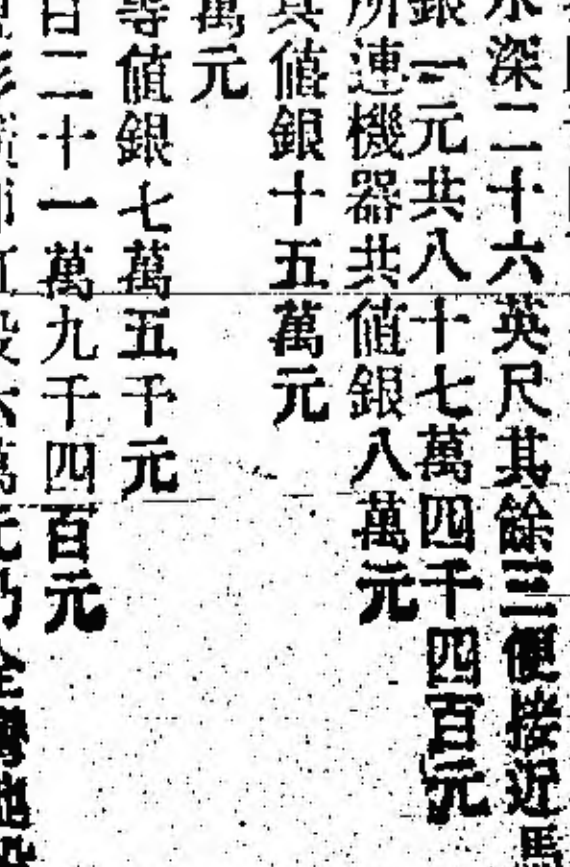 水深二十六英尺其餘三便接近馬
銀一元共八十七萬四千四百元
所連機器共値銀八萬元
其値銀十五萬元
萬元
等値銀七萬五千元
百二十一萬九千四百元
六萬元乃全灣地段